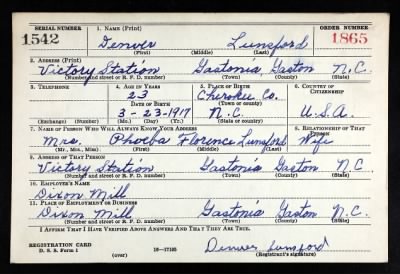 SERIAL NUMBER 1. NAME (Print) ORDER NUMBER
1542 Denver Lunsford 1865
(First) (Middle) (Last)
2. ADDRESS (Print)
Victory Station Gastonia, Gaston N.C.
(Number and street or R. F. D. number) (Town) (County) (State)
3. TELEPHONE 4. AGE IN YEARS 5. PLACE OF BIRTH 6. COUNTRY OF CITIZENSHIP
23 Cherokee Co.
DATE OF BIRTH (Town or county)
3-23-1917 N.C. U.S.A.
(Exchange) (Number) (Mo.) (Day) (Yr.) (State or country)
7. NAME OF PERSON WHO WILL ALWAYS KNOW YOUR ADDRESS 8. RELATIONSHIP OF THAT PERSON
Mrs. Phoeba Florence Lunsford Wife
(Mr., Mrs., Miss) (First) (Middle) (Last)
9. ADDRESS OF THAT PERSON
Victory Station Gastonia Gaston N C
(Number and street or R. F. D. number) (Town) (County) (State)
10. EMPLOYER'S NAME
Dixon Mill
11. PLACE OF EMPLOYMENT OR BUSINESS
Dixon Mill Gastonia Gaston N.C.
(Number and street or R. F. D. number) (Town) (County) (State)
I AFFIRM THAT I HAVE VERIFIED ABOVE ANSWERS AND THAT THEY ARE TRUE.
REGISTRATION CARD
D. S. S. Form 1 16-17105 Denver Lunsford
(over) (Registrant's signature)